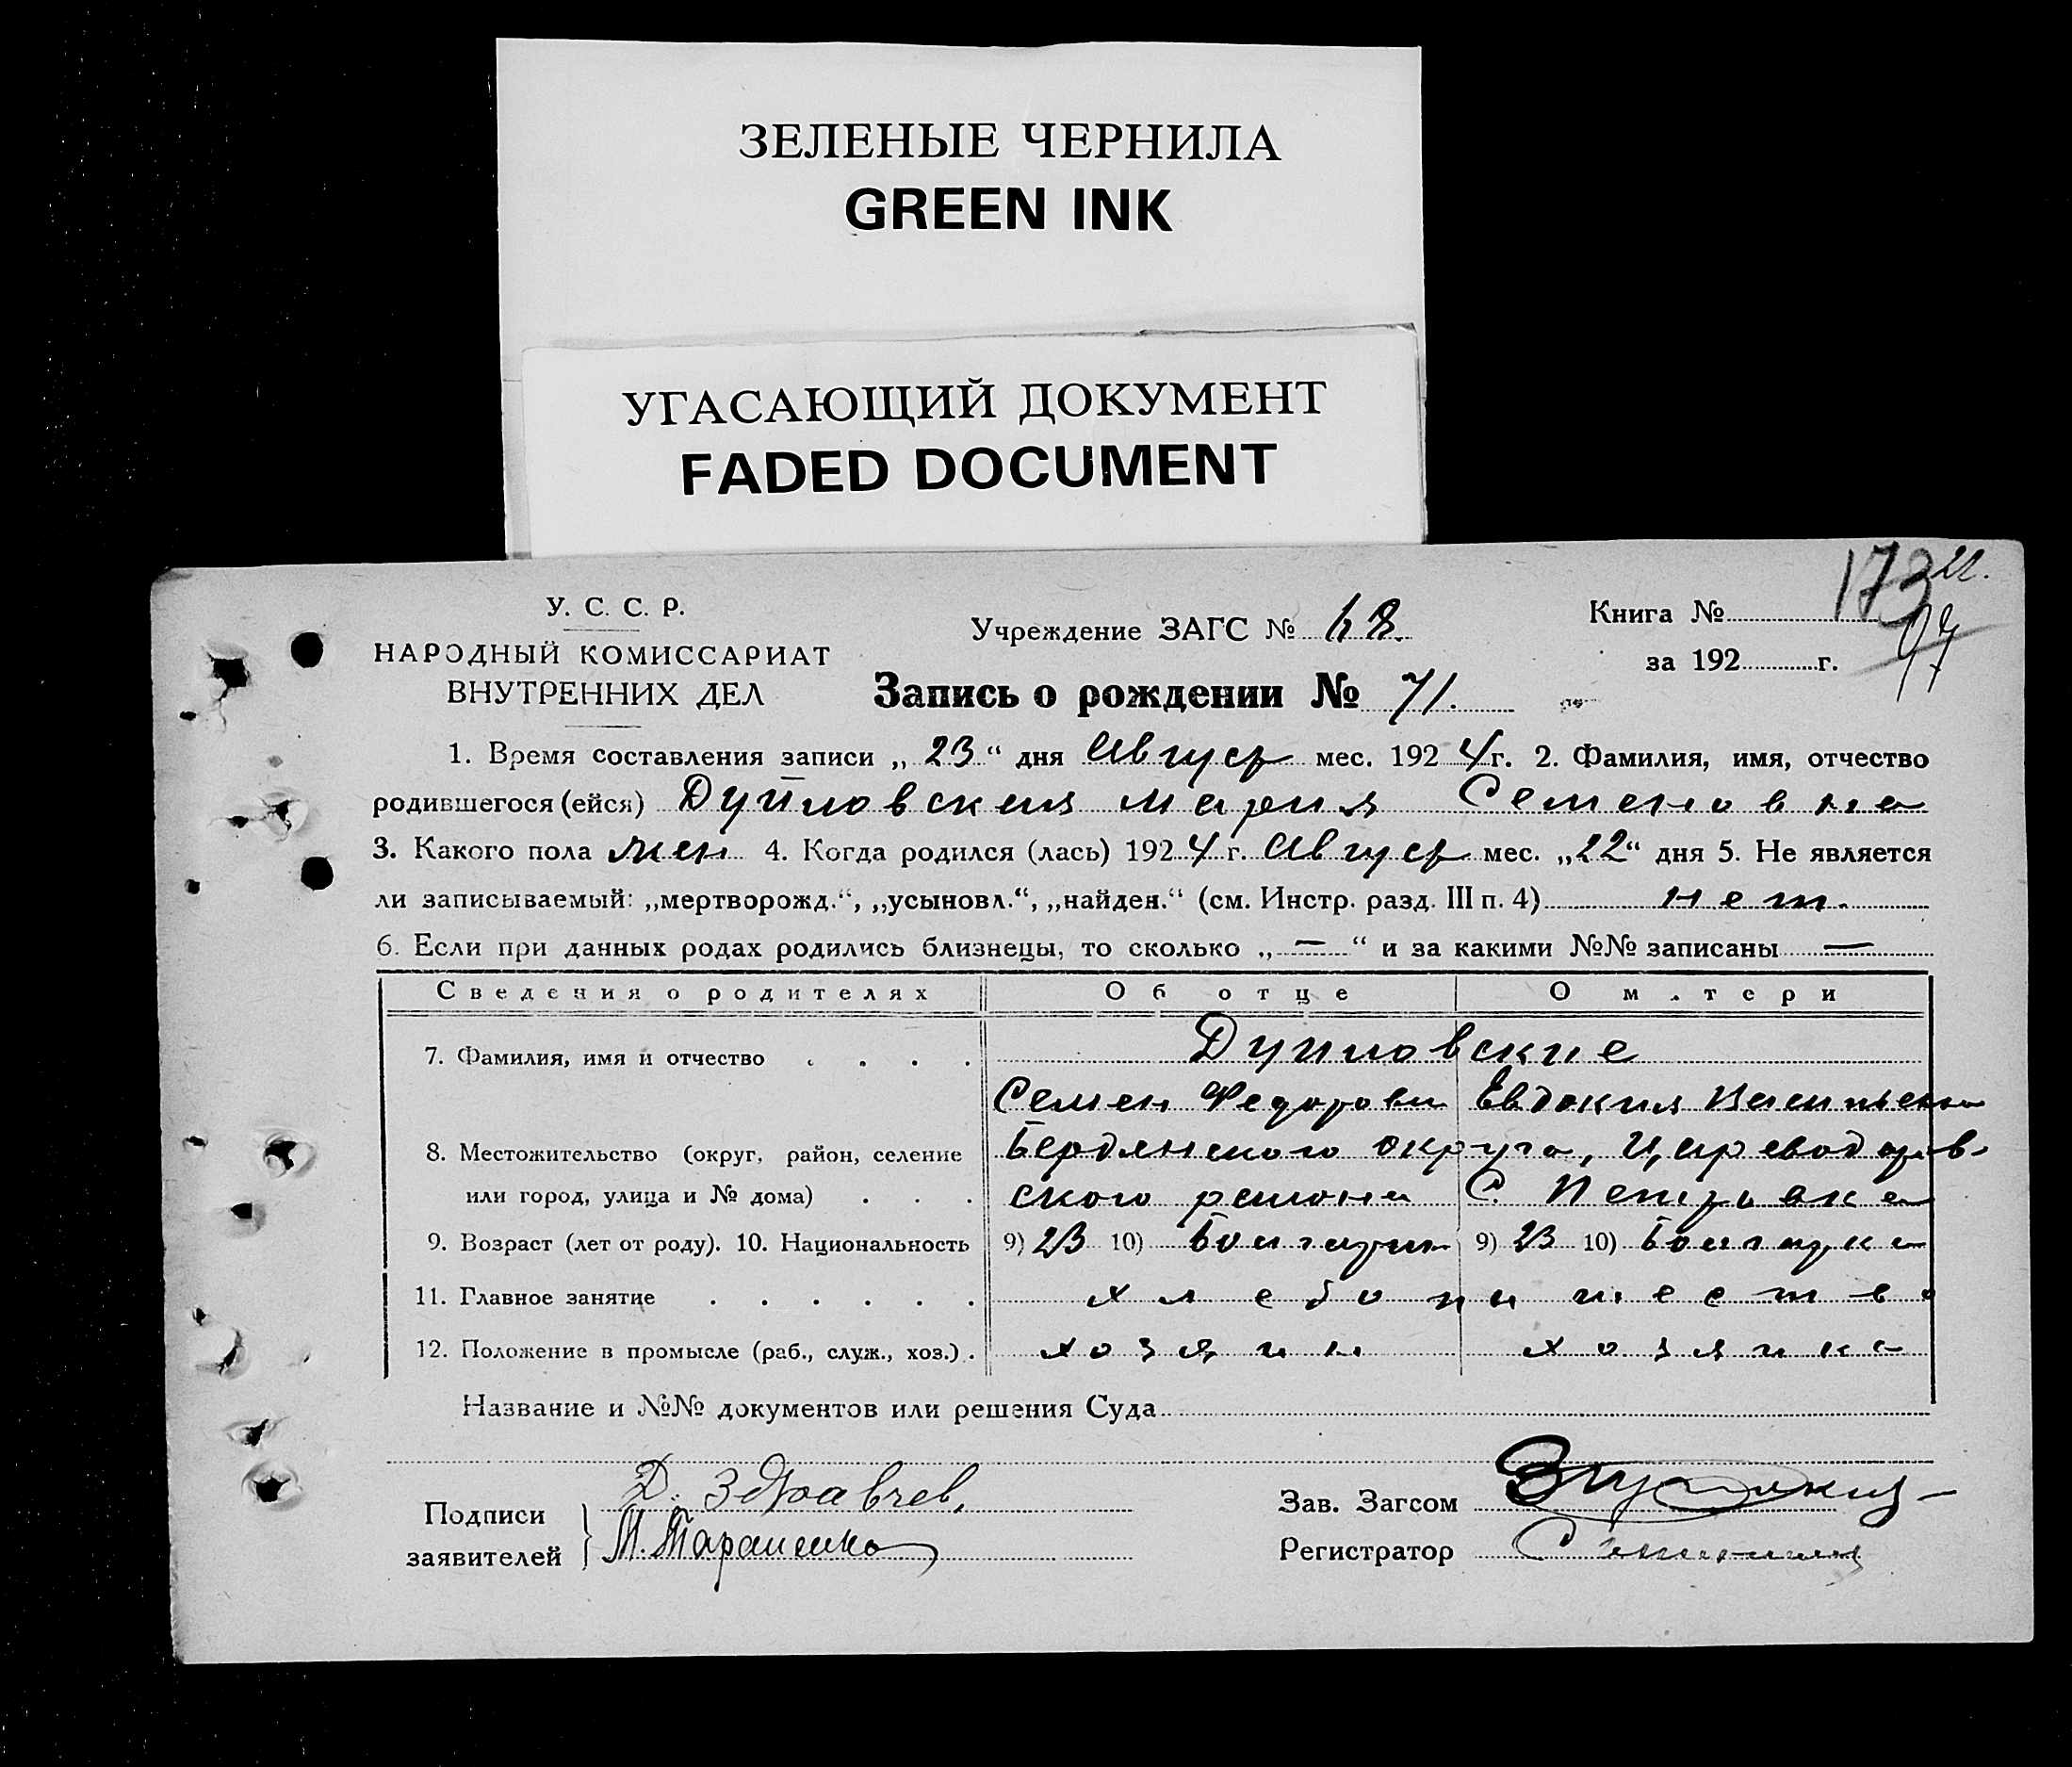 ЗЕЛЕНЫЕ ЧЕРНИЛА
GREEN INK
УГАСАЮЩИЙ ДОКУМЕНТ
FADED DOCUMENT
173 
97
У. С. С. Р.
НАРОДНЫЙ КОМИССАРИАТ
ВНУТРЕННИХ ДЕЛ
Учреждение ЗАГС № 
Книга №
за 192 г.
Запись о рождении № 71.
1. Время составления записи „ 23 “ дня Август мес. 192 4 г. 2. Фамилия, имя, отчество
родившегося (ейся) Мария Семеновна
3. Какого пола жен 4. Когда родился (лась) 192 4 г. Август мес. „22“ дня 5. Не является
ли записываемый: „мертворожд.“, „усыновл.“, „найден.“ (см. Инстр. разд. III п. 4) нет.
6. Если при данных родах родились близнецы, то сколько „ — “ и за какими №№ записаны —
Сведения о родителях Об отце О матери
7. Фамилия, имя и отчество . . . .
Семен Федорови Евдокия Васильевна
8. Местожительство (округ, район, селение Бердянского округа, Цареводаров-
или город, улица и № дома) . . . ского района С. Петровка
9. Возраст (лет от роду). 10. Национальность 9) 23 10) Болгарин 9) 23 10) Болгарка
11. Главное занятие . . . . . . хлебопашество
12. Положение в промысле (раб., служ., хоз.) . хозяин хозяйка
Название и №№ документов или решения Суда
Подписи заявителей
Д. Здравчев,
М. Тараненко
Зав. Загсом
Регистратор